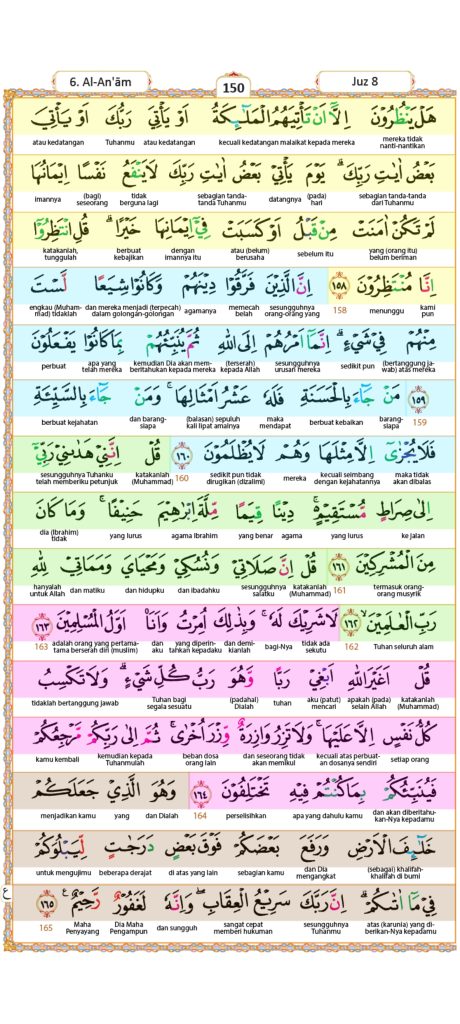 6. Al-An'ām
150
Juz 8
هَلْ يَنْظُرُوْنَ اِلَّآ اَنْ تَأْتِيَهُمُ الْمَلٰۤىِٕكَةُ اَوْ يَأْتِيَ رَبُّكَ اَوْ يَأْتِيَ
mereka tidak nanti-nantikan kecuali kedatangan malaikat kepada mereka atau kedatangan Tuhanmu atau kedatangan
بَعْضُ اٰيٰتِ رَبِّكَ ۗ يَوْمَ يَأْتِيْ بَعْضُ اٰيٰتِ رَبِّكَ لَا يَنْفَعُ نَفْسًا اِيْمَانُهَا
sebagian tanda-tanda dari Tuhanmu (pada) hari datangnya sebagian tanda-tanda Tuhanmu tidak berguna lagi (bagi) seseorang imannya
لَمْ تَكُنْ اٰمَنَتْ مِنْ قَبْلُ اَوْ كَسَبَتْ فِيْٓ اِيْمَانِهَا خَيْرًا ۗ قُلِ انْتَظِرُوْٓا
yang (orang itu) belum beriman sebelum itu atau (belum) berusaha dengan imannya itu berbuat kebajikan katakanlah, tunggulah
اِنَّا مُنْتَظِرُوْنَ ۝١٥٨ اِنَّ الَّذِيْنَ فَرَّقُوْا دِيْنَهُمْ وَكَانُوْا شِيَعًا لَّسْتَ
kami pun menunggu 158 sesungguhnya orang-orang yang memecah belah agamanya dan mereka menjadi (terpecah) dalam golongan-golongan engkau (Muham-mad) tidaklah
مِنْهُمْ فِيْ شَيْءٍ ۗ اِنَّمَآ اَمْرُهُمْ اِلَى اللّٰهِ ثُمَّ يُنَبِّئُهُمْ بِمَا كَانُوْا يَفْعَلُوْنَ
(bertanggung ja-wab) atas mereka sedikit pun sesungguhnya urusan mereka (terserah) kepada Allah kemudian Dia akan mem-beritahukan kepada mereka apa yang telah mereka perbuat
۝١٥٩ مَنْ جَاۤءَ بِالْحَسَنَةِ فَلَهٗ عَشْرُ اَمْثَالِهَا ۚ وَمَنْ جَاۤءَ بِالسَّيِّئَةِ
159 barang-siapa berbuat kebaikan maka mendapat (balasan) sepuluh kali lipat amalnya dan barang-siapa berbuat kejahatan
فَلَا يُجْزٰٓى اِلَّا مِثْلَهَا وَهُمْ لَا يُظْلَمُوْنَ ۝١٦٠ قُلْ اِنَّنِيْ هَدٰىنِيْ رَبِّيْٓ
maka tidak akan dibalas kecuali seimbang dengan kejahatannya mereka sedikit pun tidak dirugikan (dizalimi) 160 katakanlah (Muhammad) sesungguhnya Tuhanku telah memberiku petunjuk
اِلٰى صِرَاطٍ مُّسْتَقِيْمٍ ۚ دِيْنًا قِيَمًا مِّلَّةَ اِبْرٰهِيْمَ حَنِيْفًا ۚ وَمَا كَانَ
ke jalan yang lurus agama yang benar agama ibrahim yang lurus dia (Ibrahim) tidak
مِنَ الْمُشْرِكِيْنَ ۝١٦١ قُلْ اِنَّ صَلَاتِيْ وَنُسُكِيْ وَمَحْيَايَ وَمَمَاتِيْ لِلّٰهِ
termasuk orang-orang musyrik 161 katakanlah (Muhammad) sesungguhnya salatku dan ibadahku dan hidupku dan matiku hanyalah untuk Allah
رَبِّ الْعٰلَمِيْنَ ۙ ۝١٦٢ لَا شَرِيْكَ لَهٗ ۚ وَبِذٰلِكَ اُمِرْتُ وَاَنَا۠ اَوَّلُ الْمُسْلِمِيْنَ ۝١٦٣
Tuhan seluruh alam 162 tidak ada sekutu bagi-Nya dan demi-kianlah yang diperin-tahkan kepadaku dan aku adalah orang yang pertama-tama berserah diri (muslim) 163
قُلْ اَغَيْرَ اللّٰهِ اَبْغِيْ رَبًّا وَّهُوَ رَبُّ كُلِّ شَيْءٍ ۗ وَلَا تَكْسِبُ
katakanlah (Muhammad) apakah (pada) selain Allah aku (patut) mencari tuhan (padahal) Dialah Tuhan bagi segala sesuatu tidaklah bertanggung jawab
كُلُّ نَفْسٍ اِلَّا عَلَيْهَا ۚ وَلَا تَزِرُ وَازِرَةٌ وِّزْرَ اُخْرٰى ۚ ثُمَّ اِلٰى رَبِّكُمْ مَّرْجِعُكُمْ
setiap orang kecuali atas perbuat-an dosanya sendiri dan seseorang tidak akan memikul beban dosa orang lain kemudian kepada Tuhanmulah kamu kembali
فَيُنَبِّئُكُمْ بِمَا كُنْتُمْ فِيْهِ تَخْتَلِفُوْنَ ۝١٦٤ وَهُوَ الَّذِيْ جَعَلَكُمْ
dan akan diberitahu-kan-Nya kepadamu apa yang dahulu kamu perselisihkan 164 dan Dialah yang menjadikan kamu
خَلٰۤىِٕفَ الْاَرْضِ وَرَفَعَ بَعْضَكُمْ فَوْقَ بَعْضٍ دَرَجٰتٍ لِّيَبْلُوَكُمْ
(sebagai) khalifah-khalifah di bumi dan Dia mengangkat sebagian kamu di atas yang lain beberapa derajat untuk mengujimu
فِيْ مَآ اٰتٰىكُمْ ۗ اِنَّ رَبَّكَ سَرِيْعُ الْعِقَابِ ۖ وَاِنَّهٗ لَغَفُوْرٌ رَّحِيْمٌ ࣖ ۝١٦٥
atas (karunia) yang di-berikan-Nya kepadamu sesungguhnya Tuhanmu sangat cepat memberi hukuman dan sungguh Dia Maha Pengampun Maha Penyayang 165
ع